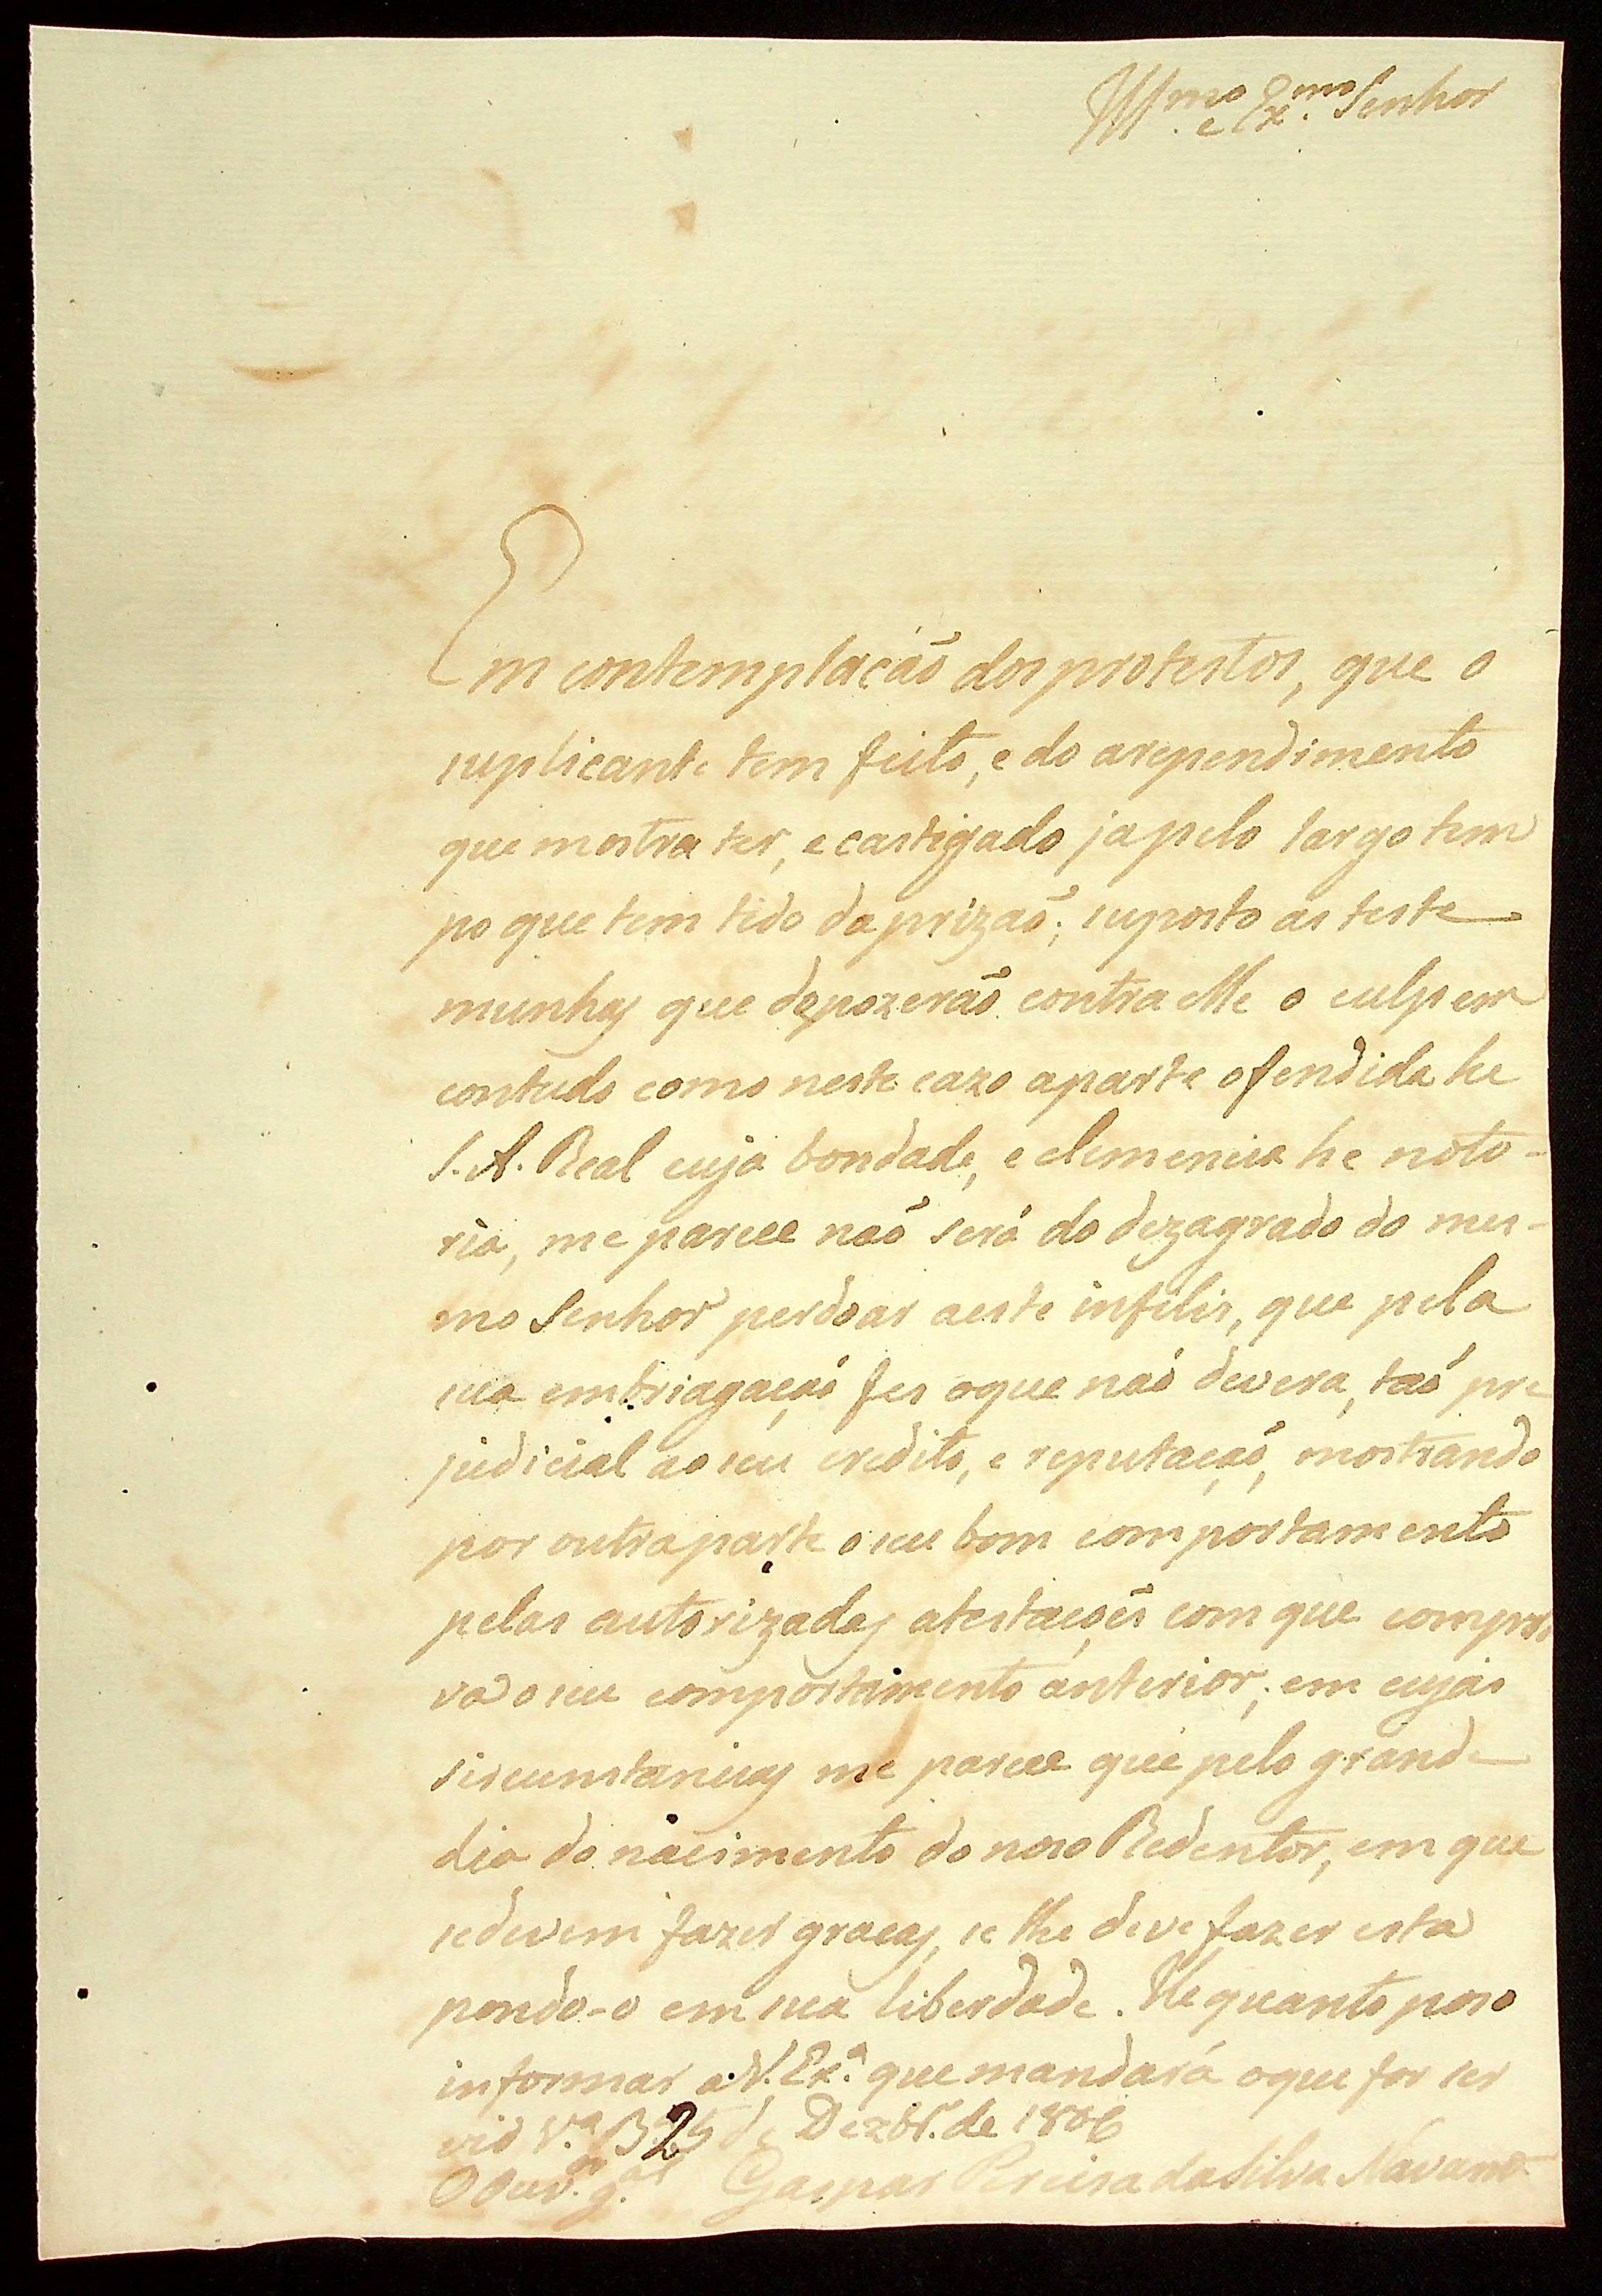 Illmo. e Exmo. Senhor
Em contemplacaõ dos protestos, que o
suplicante tem feito, e do arependimento
que mostra ter, e castigado ja pelo largo tem
po que tem tido da prizaõ; suposto as teste
munhas que depozeraõ contra elle o culpem
contudo como neste cazo aparte ofendida he
S. A. Real cuja bondade, e clemencia he noto-
ria, me parece naõ será do dezagrado do mes-
mo Senhor perdoar aeste infelis, que pela
sua embriagaçaõ fes oque naõ devera, taõ pre
judicial ao seu credito, e reputaçaõ, mostrando
por outra parte o seu bom comportamento
pelas autorizadas atestaçoẽs com que compro
va o seu comportamento anterior; em cujas
sircumstancias me parece que pelo grande
dia do nacimento do noso Redentor, em que
sedevem fazer gracas, se lhe deve fazer esta
pondo-o em sua liberdade. He quanto poso
informar a V. Exa. que mandará oque for ser
vid Va. Ba. 25 de Dezbr. de 1806
O Ouvor. g.al Gaspar Pereira da Silva Navarro